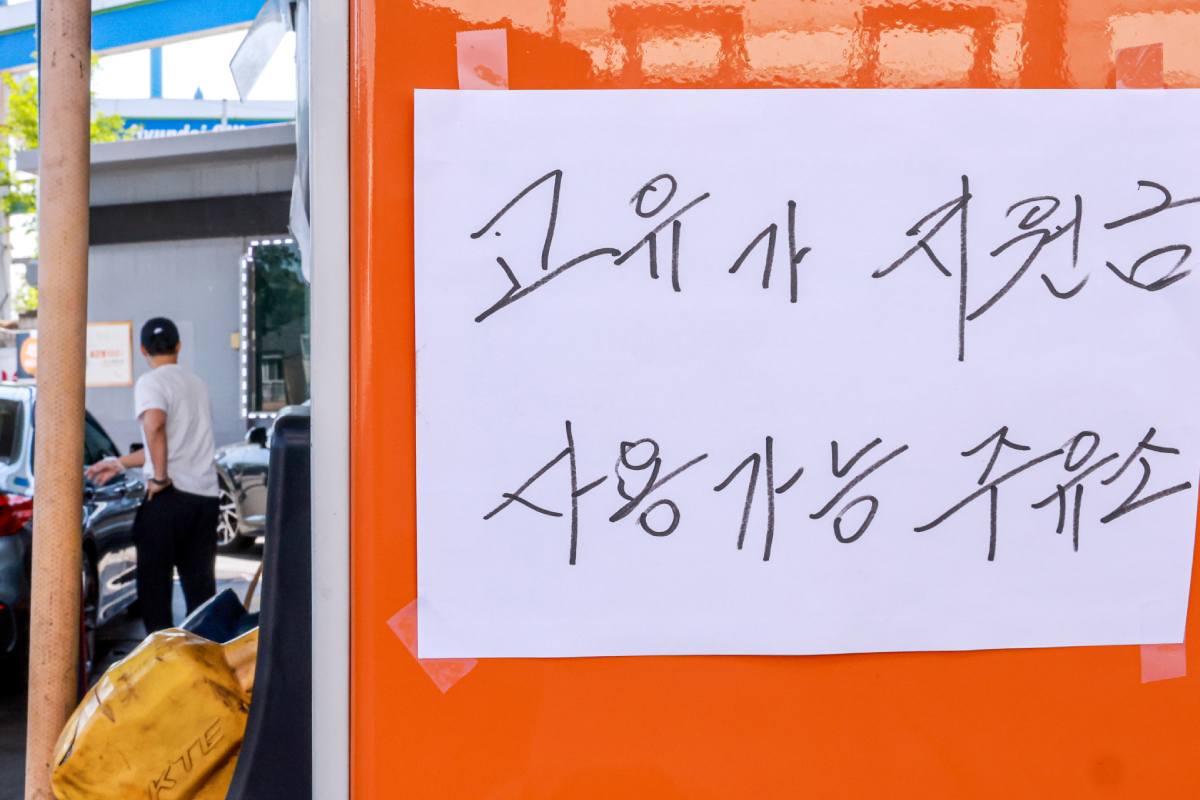 고유가 지원금
사용가능 주유소
KTE